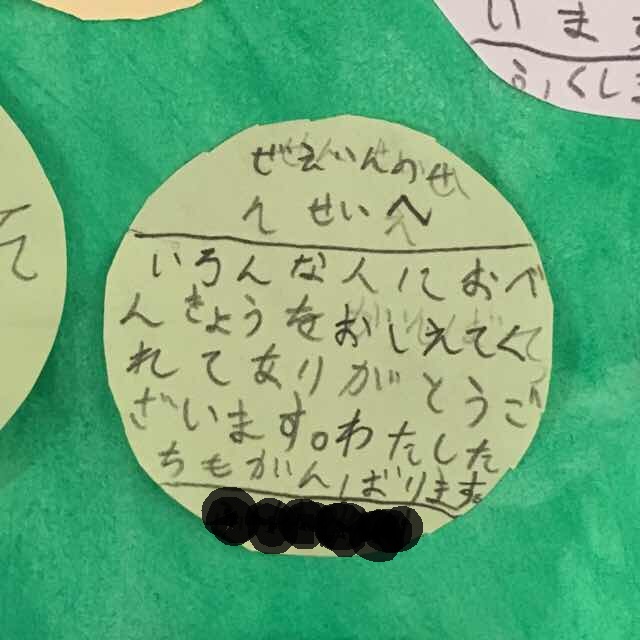 います
ふくし
ぜえいんのせ
んせいへ
いろんな人におべ
んきょうをおしえてく
れてありがとうご
ざいます。わたした
ちもがんばります。